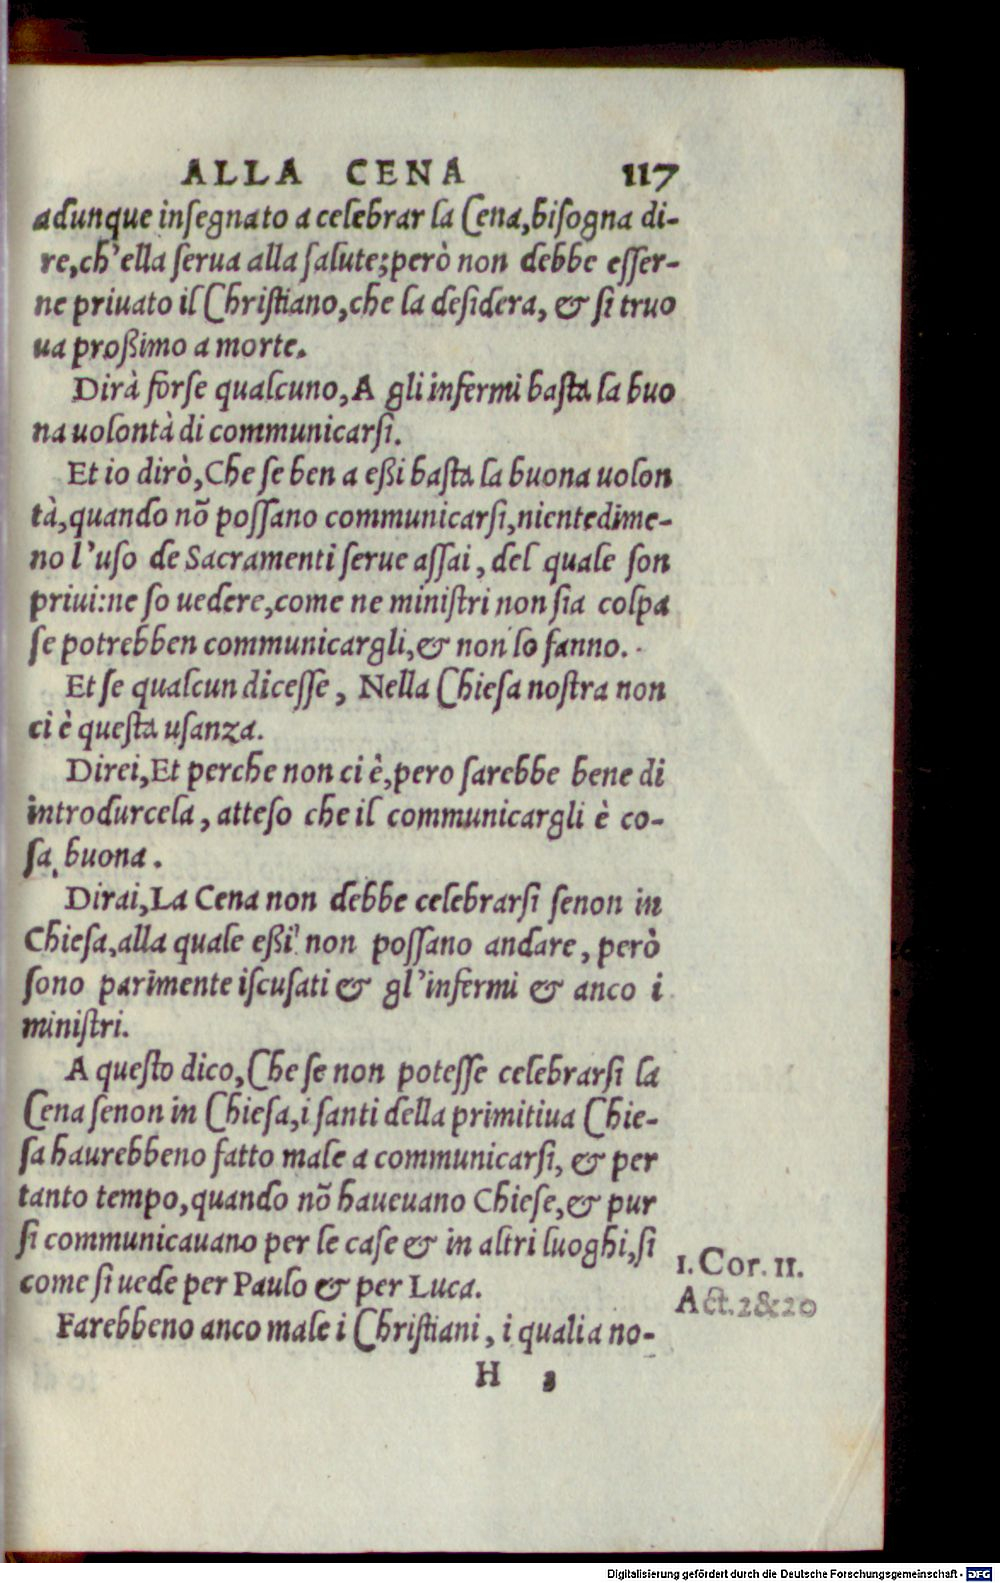 ALLA CENA 117
adunque inſegnato a celebrar la Cena, biſogna di-
re, ch'ella ſerua alla ſalute; però non debbe eſſer-
ne priuato il Chriſtiano, che la deſidera, & ſi truo
ua proßimo a morte.
Dirà forſe qualcuno, A gli infermi baſta la buo
na uolontà di communicarſi.
Et io dirò, Che ſe ben a eßi baſta la buona uolon
tà, quando nõ poſſano communicarſi, nientedime-
no l'uſo de Sacramenti ſerue aſſai, del quale ſon
priui: ne ſo uedere, come ne miniſtri non ſia colpa
ſe potrebben communicargli, & non lo fanno.
Et ſe qualcun diceſſe, Nella Chieſa noſtra non
ci è queſta uſanza.
Direi, Et perche non ci è, pero ſarebbe bene di
introdurcela, atteſo che il communicargli è co-
ſa buona.
Dirai, La Cena non debbe celebrarſi ſenon in
Chieſa, alla quale eßi non poſſano andare, però
ſono parimente iſcuſati & gl'infermi & anco i
miniſtri.
A queſto dico, Che ſe non poteſſe celebrarſi la
Cena ſenon in Chieſa, i ſanti della primitiua Chie-
ſa haurebbeno fatto male a communicarſi, & per
tanto tempo, quando nõ haueuano Chieſe, & pur
ſi communicauano per le caſe & in altri luoghi, ſi
come ſi uede per Paulo & per Luca.
1. Cor. 11.
Act. 2 & 20
Farebbeno anco male i Chriſtiani, i quali a no-
H 3
Digitalisierung gefördert durch die Deutsche Forschungsgemeinschaft - DFG